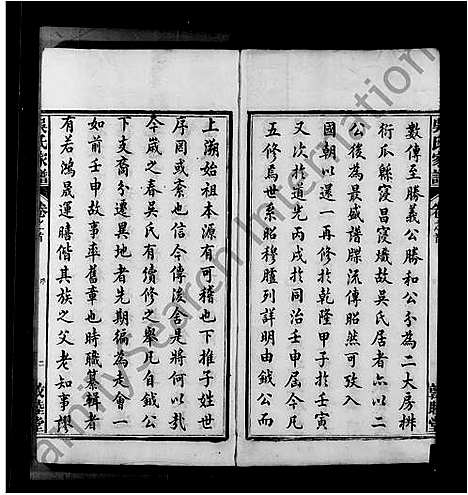 數傳至勝義公勝和公分為二大房椒
衍瓜縣寖昌寖熾故吳氏居者六以二
公後為最盛譜牒流傳昭然可攷入
國朝以還一再修於乾隆甲子於壬寅
又次於道光丙戌於同治壬申屆今凡
五修焉世系昭穆臚列詳明由鉞公而
上溯始祖本原有可稽也下推子姓世
序罔或紊也信今傳後舍是將何以哉
今歲之春吳氏有續修之舉凡自鉞公
下支裔分遷異地者先期徧為走會一
如前壬申故事率舊章也時職纂輯者
有若鴻晟運膳偕其族之父老知事學
吳氏家譜
敦睦堂
FamilySearch International